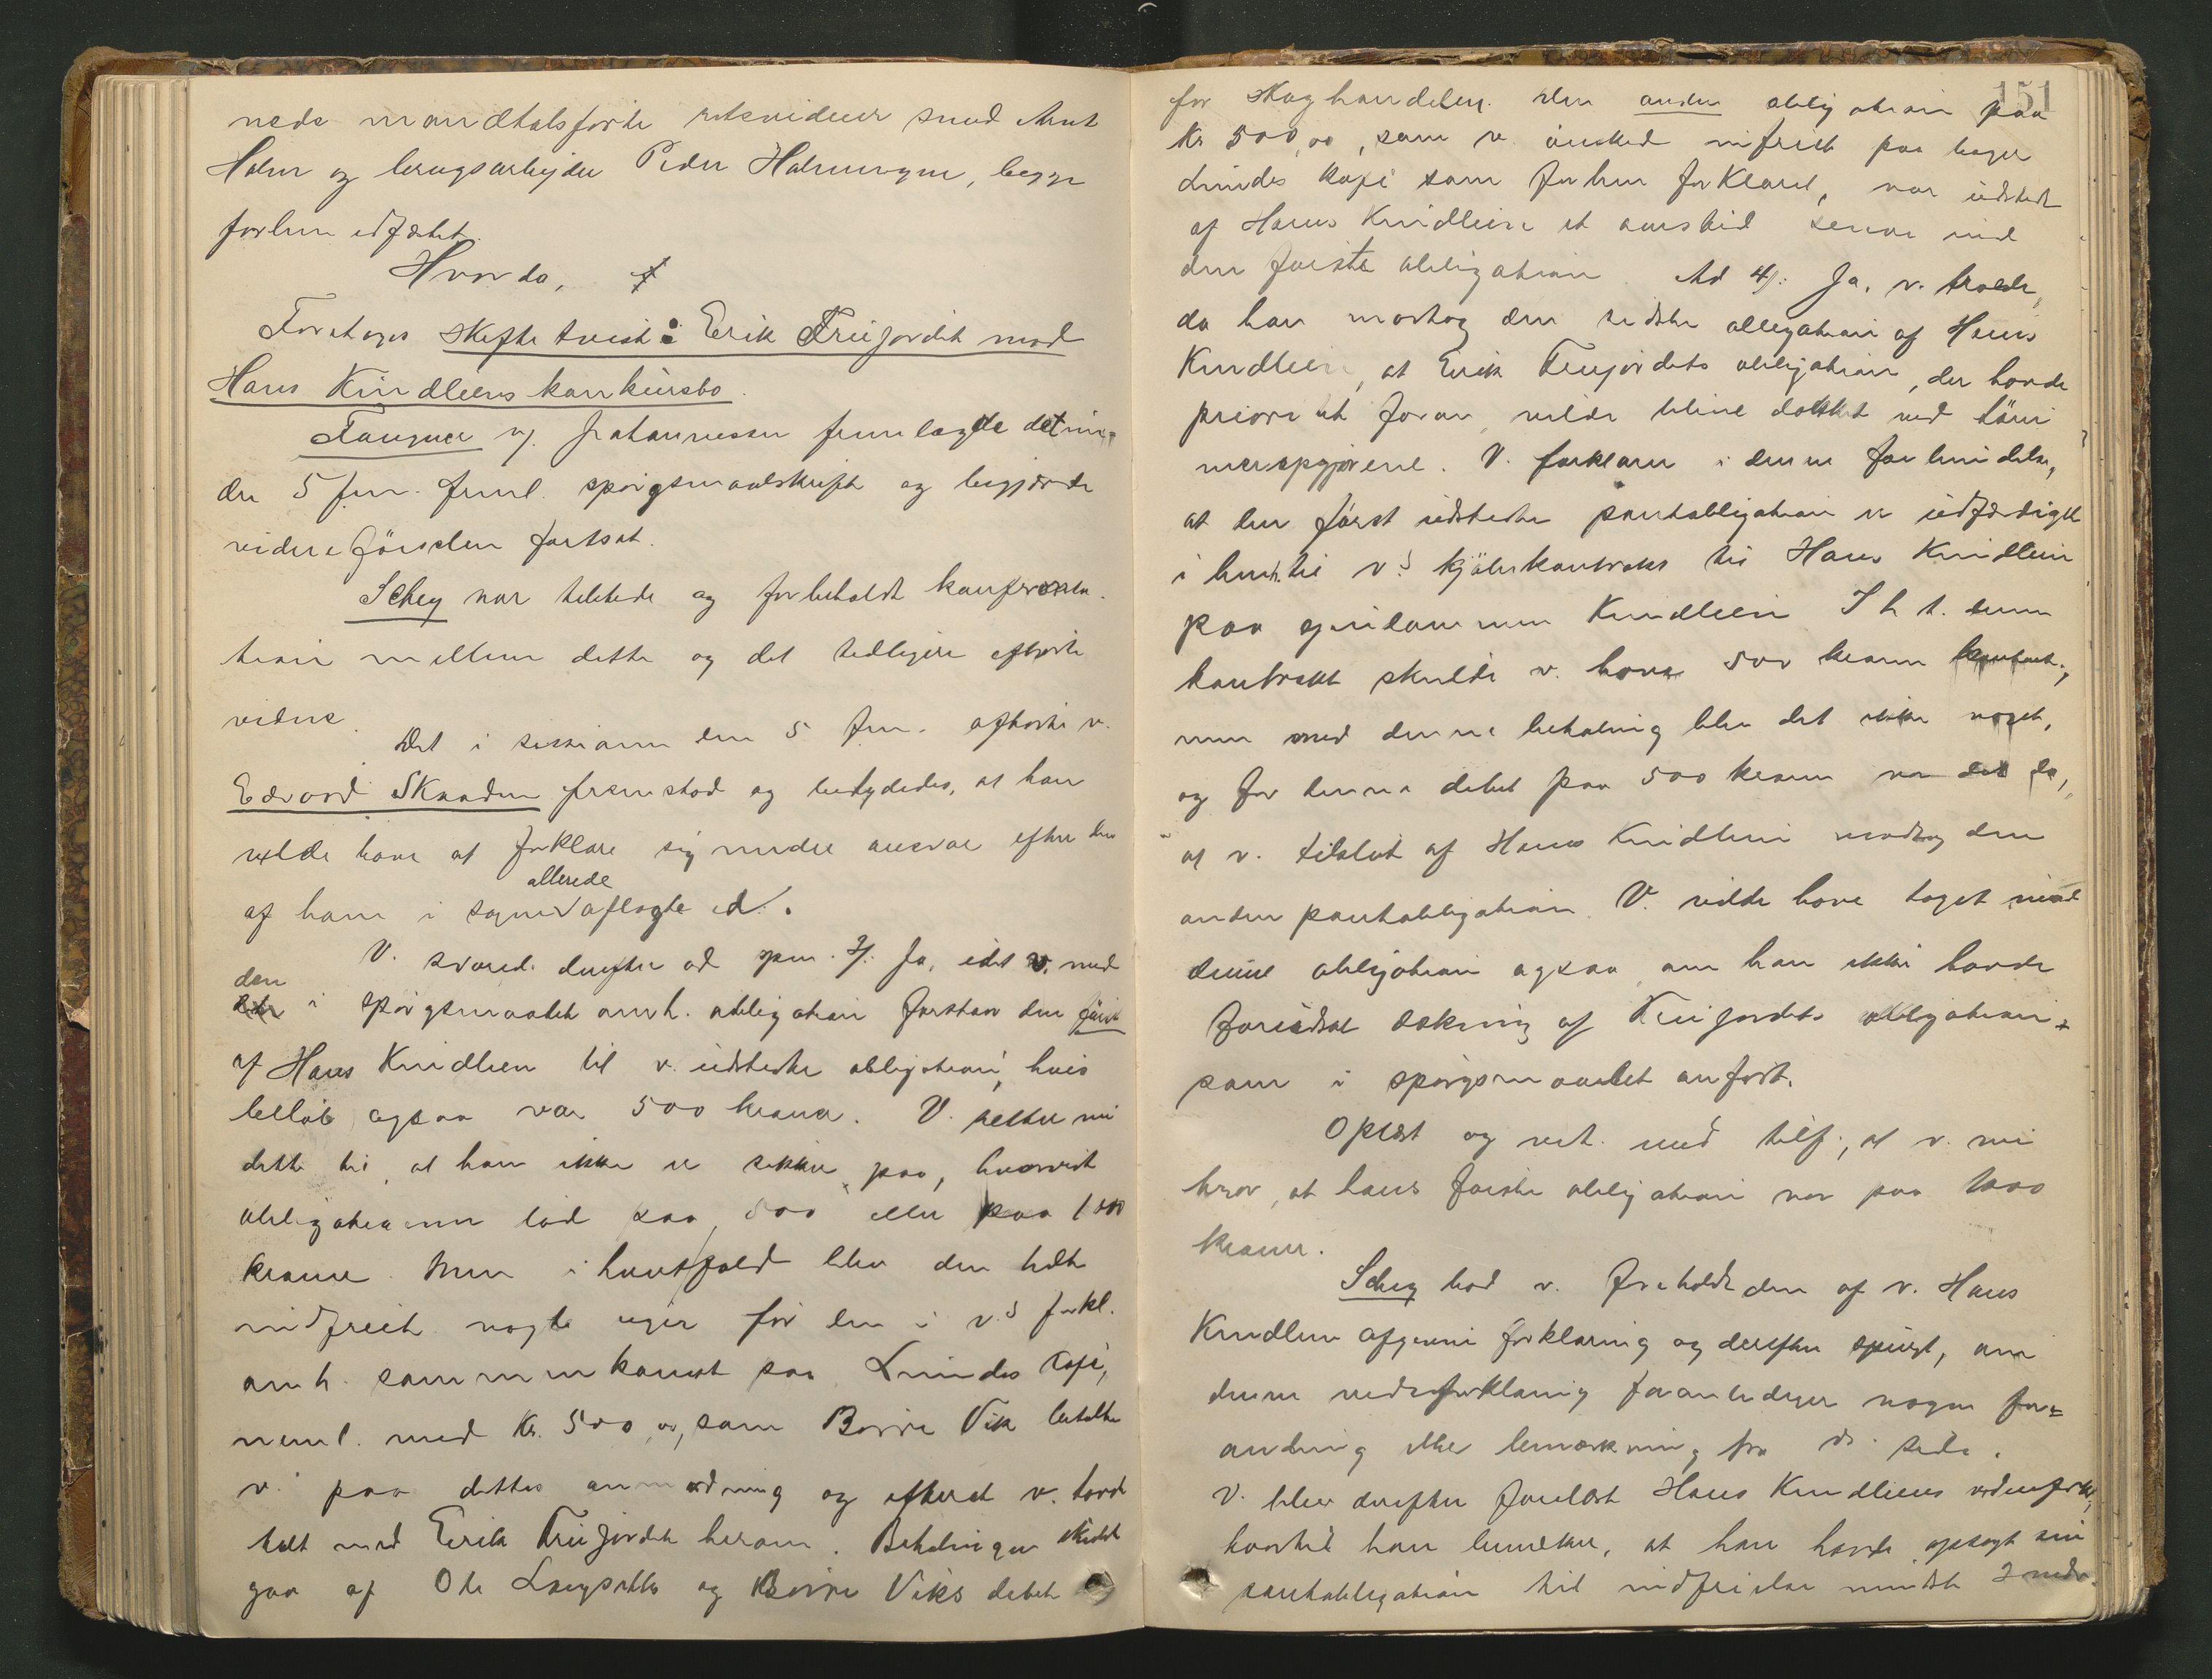 neds mandtalsførte retsvidner smed Arnt
Holm og brugsarbejder Peder Holmengen, begge
forhen edfæstet.
Hvorda,
Foretoges skiftetvist: Erik Freifjordet mod
Hans Kindleins konkursbo.
Fougner v/ Johannessen fremlagde det un-
der 5 jan. freml. spørgsmaalskrift og begjærede
vidneførselen fortsat.
Schey var tilstede og forbeholdt konfronta-
tion mellem dette og det tidligere afhørte
vidne.
Det i sessionen den 5 jan. afhørte v.
Edvard Skaaden fremstod og betydedes, at han
vilde have at forklare sig under ansvar efter den
allerede
af ham i sagen aflagte ed.
V. svared. derefter ad spm. 3/: Ja, idet v. med
den
i spørgsmaalet omh. obligation forstaar den først
af Hans Kindlien til v. udstedte obligation, hvis
beløb ogsaa var 500 kroner. V. retter nu
dette til, at han ikke er sikker paa, hvorvidt
obligationen lød paa 500 eller paa 1000
kroner. Men i hvertfald blev den helt
indfriet nogle uger før den i v.s forkl.
omh. sammenkomst paa Lundes kafe,
neml. med Kr. 500,00, som Borre Vik betalte
v. paa dettes anmodning og efterat v. havde
talt med Erik Freifjordet herom. Betalingen skulde
gaa af Ole Langsets og Borre Viks debet
151
for skoghandelen. Den anden obligation paa
Kr 500,00, som v. ønsked indfriet paa
Lundes kafe som forhen forklaret, var udstedt
af Hans Kindlein et aarstid senere end
den første obligation. Ad 4/: Ja, v. troede,
da han modtog den sidste obligation af Hans
Kindlein, at Erik Freifjordets obligation, der havde
prioritet foran, vilde blive dækket ved töm-
meropgjørene. V. forklarer i denne forbindelse,
at den først udstedte pantobligation er udfærdiget
i henh. til v.s kjøbekontrakt til Hans Kindlein
paa eiendommen Kindlein. I h. t. denne
kontrakt skulde v. have 500 kroner kontant,
men med denne betaling blev det ikke noget,
og for denne debet paa 500 kroner var det da,
at v. tilslut af Hans Kindlein modtog den
anden pantobligation. V. vilde have taget mod
denne obligation ogsaa om han ikke havde
forudsat dækning af Freifjordets obligation
som i spørgsmaalet anført.
Oplæst og vedt. med tilf., at v. nu
tror, at hans første obligation var paa 1000
kroner.
Schey bad v. foreholdt den af v. Hans
Kindlein afgivne forklaring og derefter spurgt, om
denne vidneforklaring foranlediger nogen for-
andring eller bemærkning fra v.s side.
V. blev derefter forelæst Hans Kindliens vidneforkl.,
hvortil han bemerker, at han havde opsagt sin
pantobligation til indfrielse mindst 3 mdr.